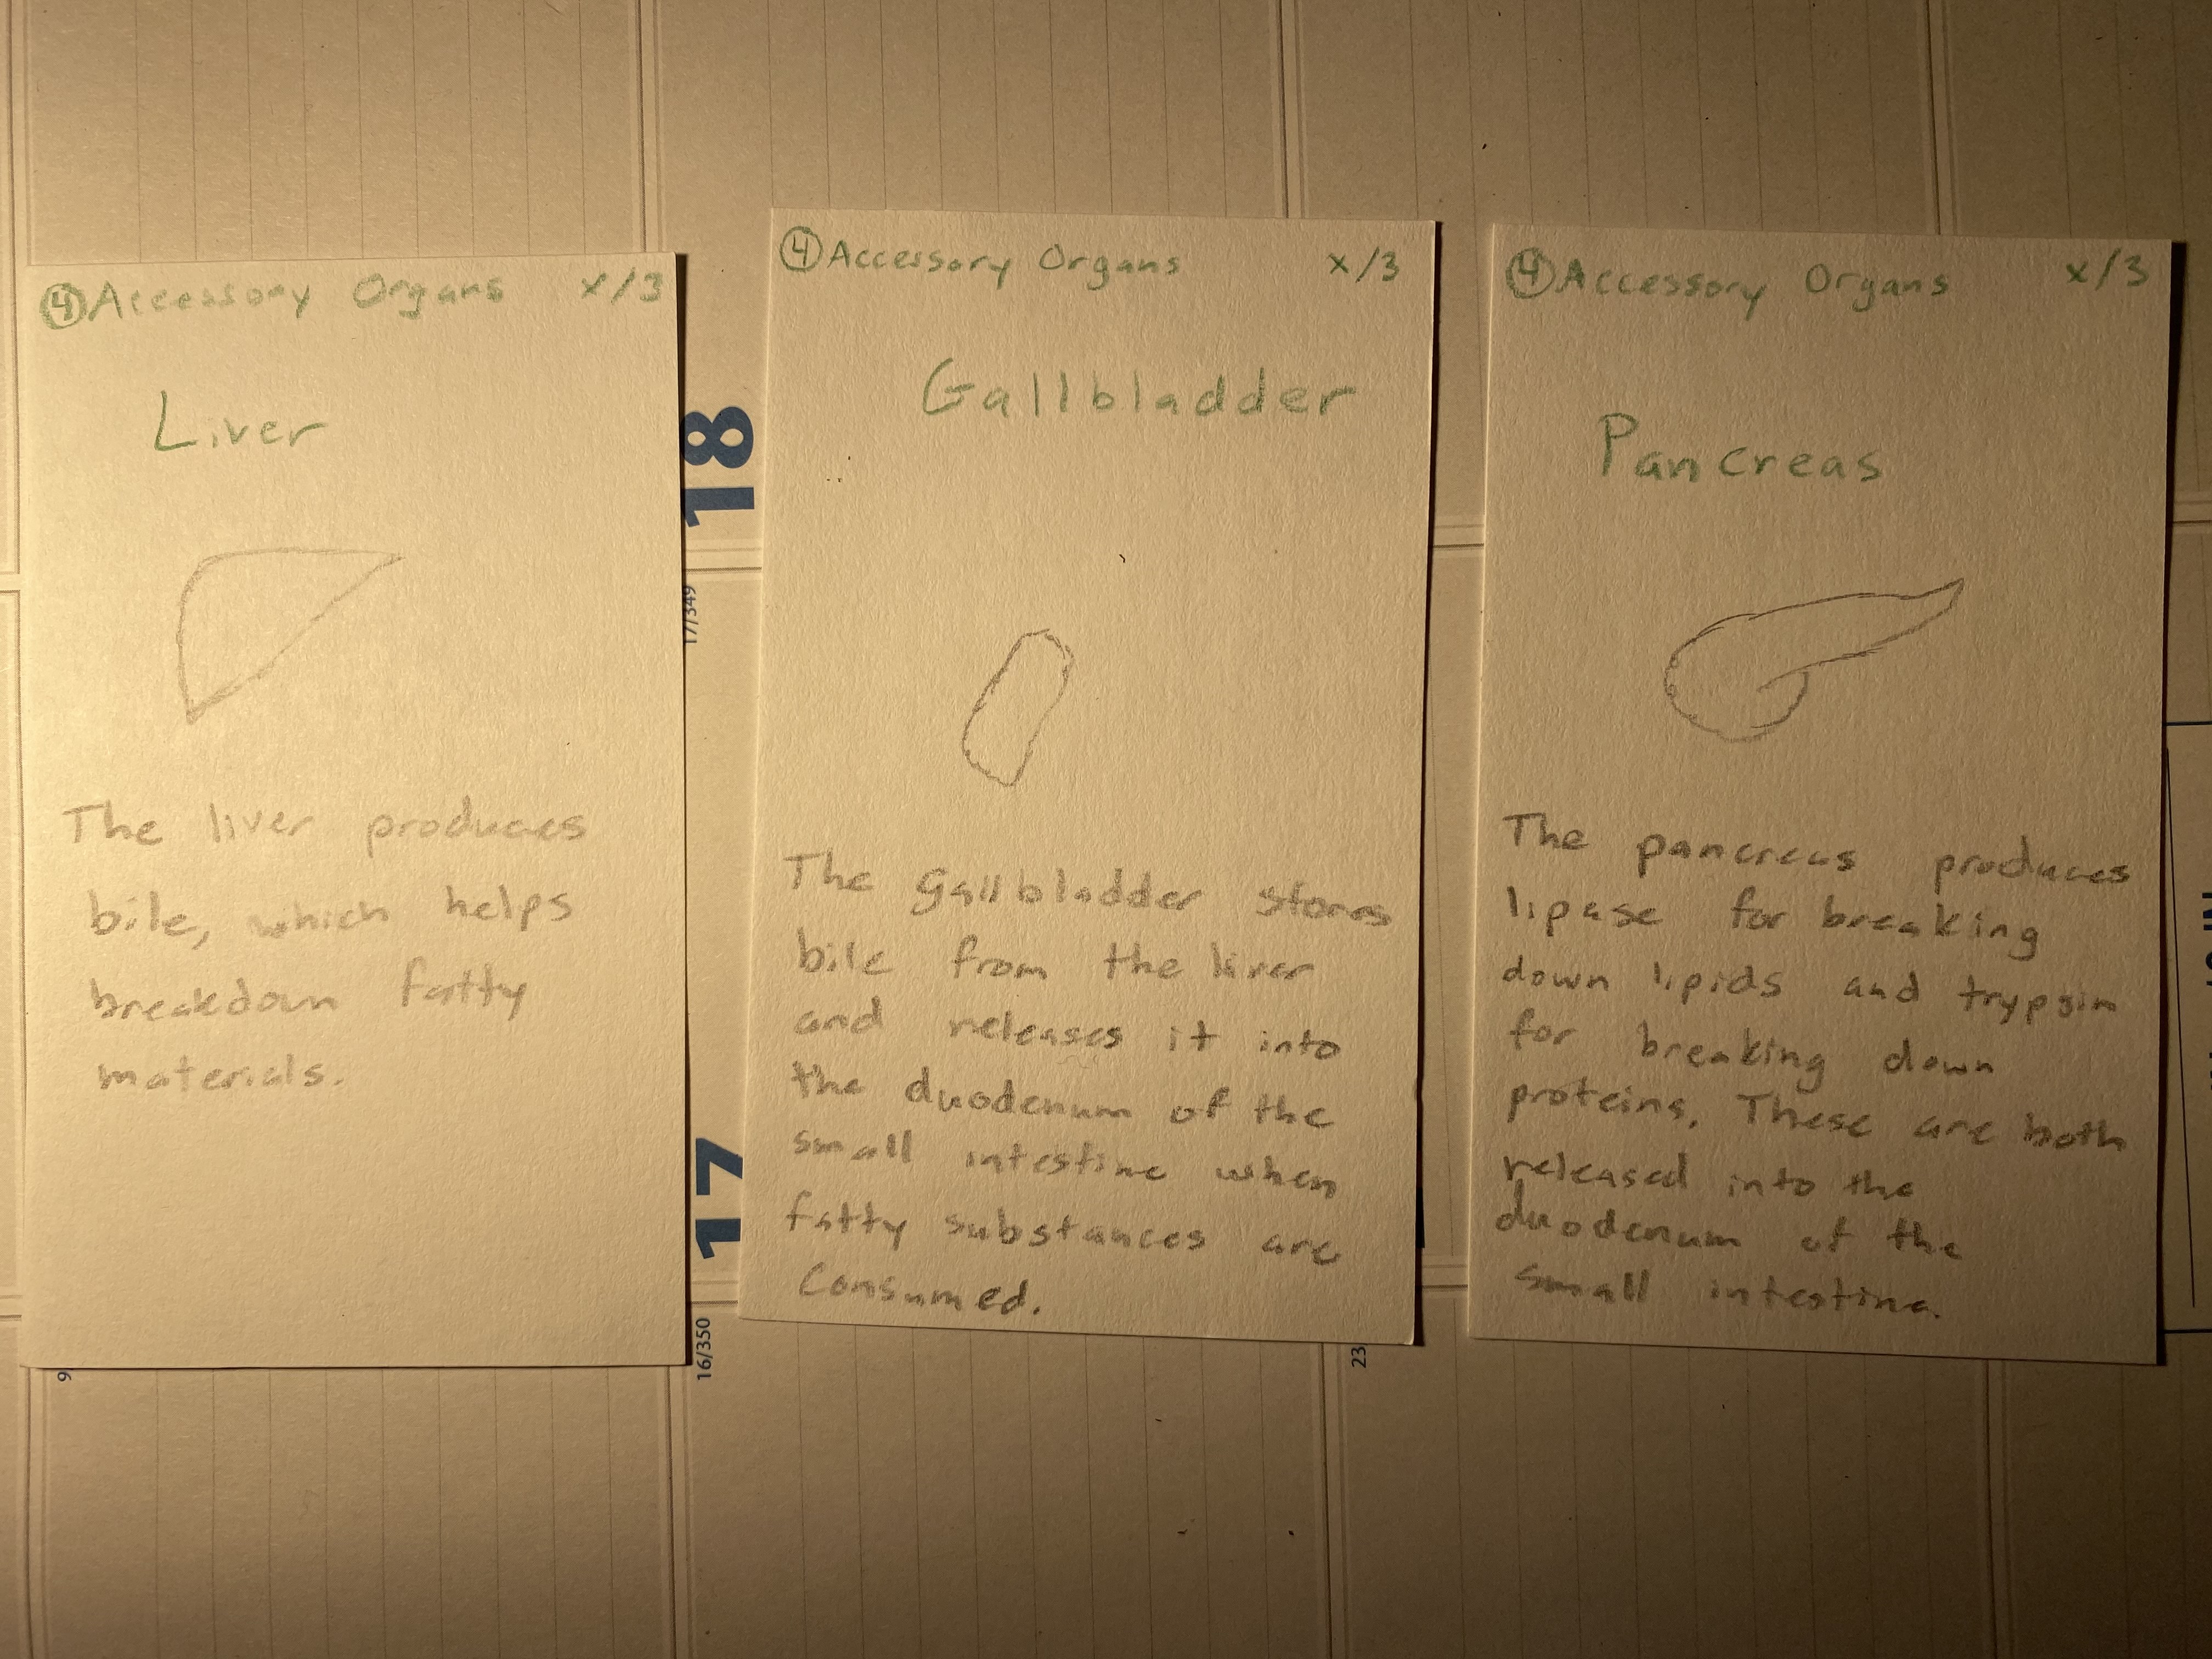 ④ Accessory Organs x/3
Liver
The liver produces
bile, which helps
breakdown fatty
materials.
④ Accessory Organs x/3
Gallbladder
The gallbladder stores
bile from the liver
and releases it into
the duodenum of the
small intestine when
fatty substances are
Consumed.
④ Accessory Organs x/3
Pancreas
The pancreas produces
lipase for breaking
down lipids and trypsin
for breaking down
proteins. These are both
released into the
duodenum of the
small intestine.
18
17/349
17
16/350
9
23